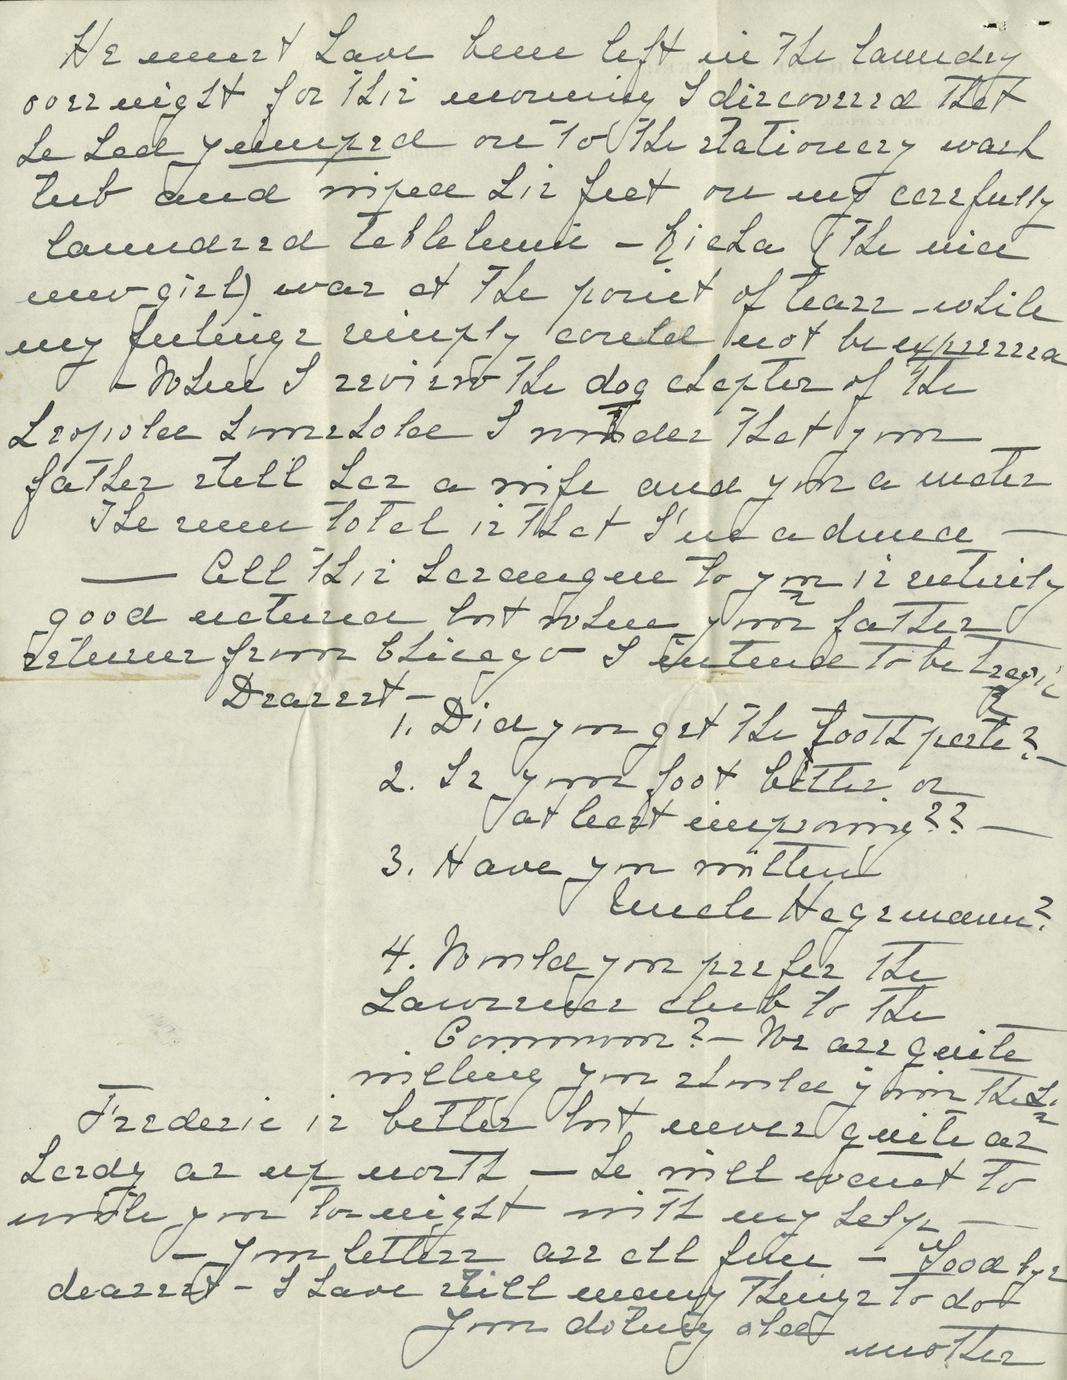 He must have been left in the laundry
over night for this morning I discovered that
he had jumped on to the stationery wash
tub and wiped his feet on my carefully
laundered table linen – (the nice
new girl) was at the point of tears – while
my feelings simply could not be expressed
– When I review the dog chapter of the
Leopold household I wonder that your
father still has a wife and you a mater
The sum total is that I'm a dunce —
— All this harangue to you is entirely
good natured but when your father
returns from Chicago I intend to be tragic
Dearest –
1. Did you get the tooth paste? –
2. Is your foot better or
at least improving?? —
3. Have you written
Uncle Hagemann?
4. Would you prefer the
Lawrence club to the
Commons? – We are quite
willing you should join the L.
Frederic is better but never quite as
hardy as up north – he will want to
write you to-night with my help —
– Your letters are all fine – Good bye
dearest – I have still many things to do
Your doting old mother